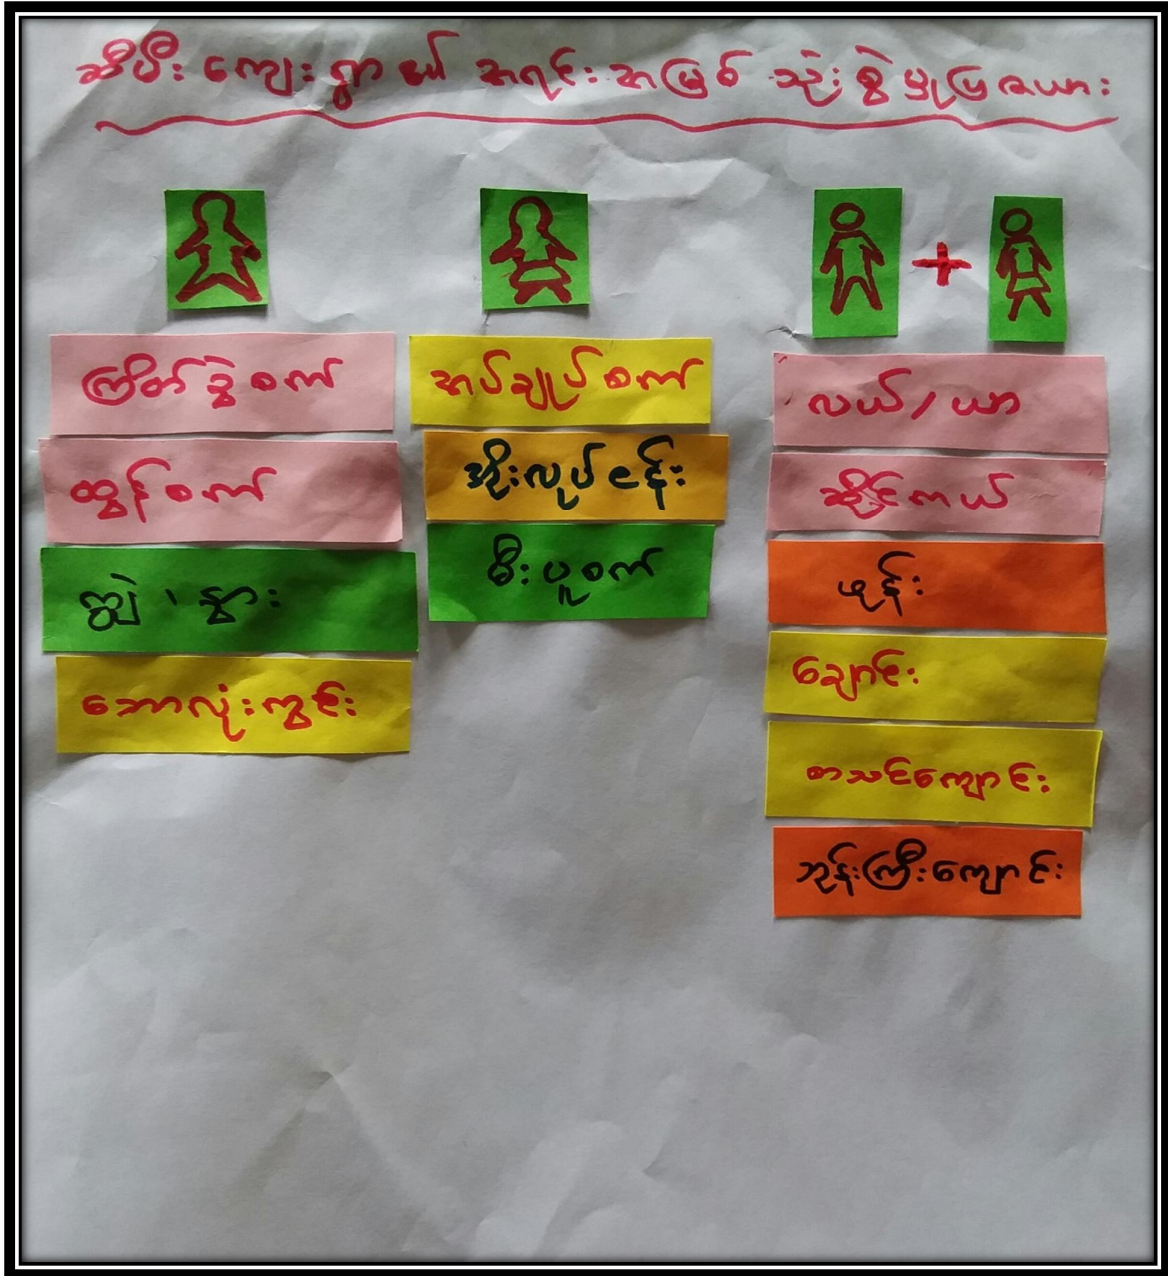 ဆီမီး ကျေးရွာ၏ အရင်းအမြစ် သုံးစွဲမှုပြဇယား
+
ကြိတ်ခွဲစက်
ထွန်စက်
ကျွဲ၊ နွား
ဘောလုံးကွင်း
အပ်ချုပ်စက်
အိုးလုပ်ငန်း
မီးပူစက်
လယ်/ယာ
ဆိုင်ကယ်
ဖုန်း
ချောင်း
စာသင်ကျောင်း
ဘုန်းကြီးကျောင်း